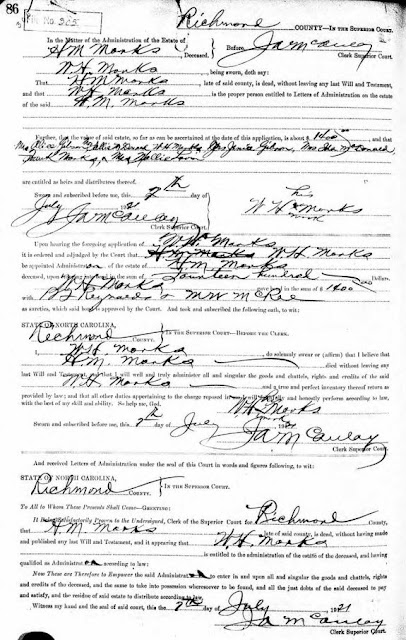 86
File No. 305
Richmond COUNTY—IN THE SUPERIOR COURT.
In the Matter of the Administration of the Estate of
H M Monks, Deceased. Before, Ja McAulay
Clerk Superior Court.
W H Monks, being sworn, doth say:
That H M Monks, late of said county, is dead, without leaving any last Will and Testament,
and that W H Monks is the proper person entitled to Letters of Administration on the estate
of the said H. M. Monks
Further, that the value of said estate, so far as can be ascertained at the date of this application, is about $1400.00, and that
Mrs W H Monks Mrs McDonald
Monks, & Mrs
are entitled as heirs and distributees thereof.
Sworn and subscribed before me, this 7th day of
July 1921 his
W H x Monks
mark
Ja McAulay
Clerk Superior Court.
Upon hearing the foregoing application of W. H. Monks
it is ordered and adjudged by the Court that W H Monks
be appointed Administrator of the estate of H M Monks
deceased, upon in the sum of Fourteen Hundred Dollars.
W H Monks gave bond in the sum of $1400
with Reynolds & M W McRae
as sureties, which said bond is approved by the Court. And took and subscribed the following oath, to wit:
STATE OF NORTH CAROLINA,
Richmond County. IN THE SUPERIOR COURT—BEFORE THE CLERK.
I, W H. Monks, do solemnly swear (or affirm) that I believe that
H M. Monks died without leaving any
last Will and Testament, and that I will well and truly administer all and singular the goods and chattels, rights and credits of the said
H Monks and a true and perfect inventory thereof return as
provided by law; and that all other duties appertaining to the charge reposed in me, I will faithfully and honestly perform according to law,
with the best of my skill and ability. So help me, God.
W H Monks
mark
Sworn and subscribed before me, this 7th day of July 1921
Ja McAulay
Clerk Superior Court.
And received Letters of Administration under the seal of this Court in words and figures following, to wit:
STATE OF NORTH CAROLINA,
Richmond COUNTY. IN THE SUPERIOR COURT.
To All to Whom These Presents Shall Come—GREETING:
It Being Satisfactorily Proven to the Undersigned, Clerk of the Superior Court for Richmond County,
that H M. Monks late of said county, is dead, without having made
and published any last Will and Testament, and it appearing that W H. Monks
is entitled to the administration of the estate of the deceased, and having
qualified as Administrator according to law:
Now These Are Therefore to Empower the said Administrator to enter in and upon all and singular the goods and chattels, rights
and credits of the deceased, and the same to take into possession wheresoever to be found, and all the just debts of the said deceased to pay
and satisfy, and the residue of said estate to distribute according to law.
Witness my hand and the seal of said court, this the 7th day of July 1921
Ja McAulay
Clerk Superior Court.